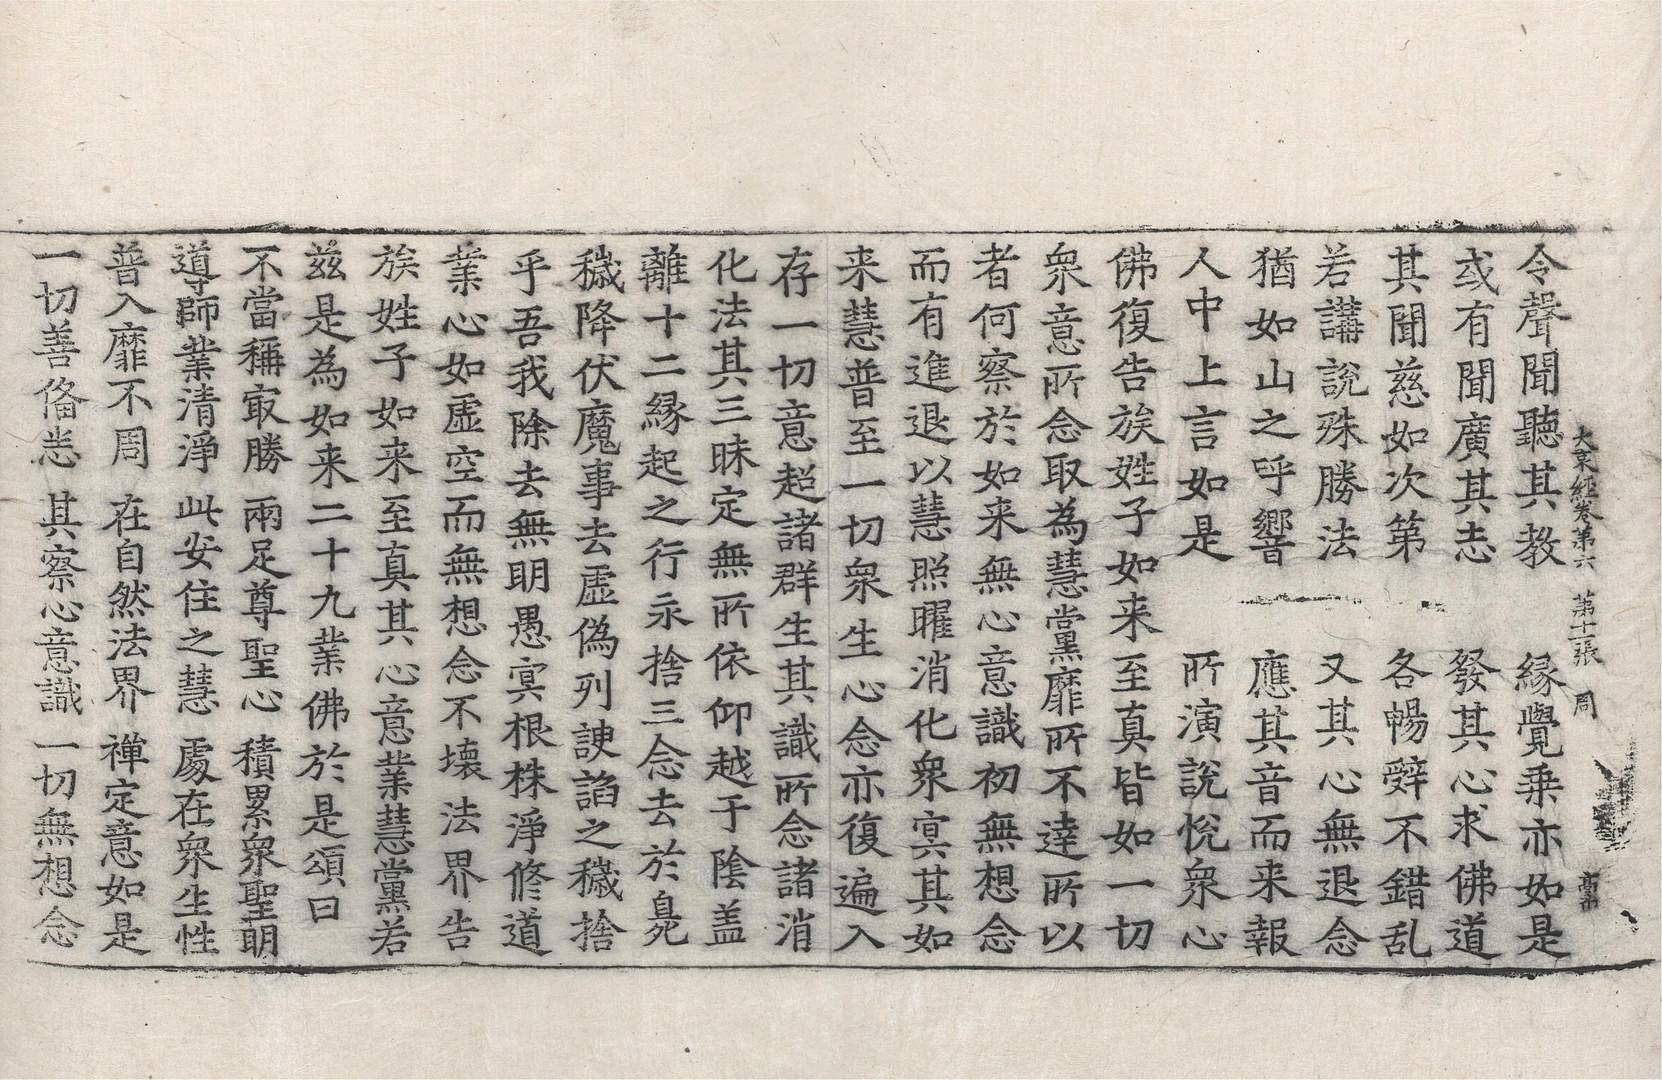 大哀經卷第六 第十二張 周
令聲聞聽其教 緣覺乘亦如是
或有聞廣其志 發其心求佛道
其聞慈如次第 各暢辭不錯乱
若講說殊勝法 又其心無退念
猶如山之呼響 應其音而来報
人中上言如是 所演說悅衆心
佛復告族姓子如来至真皆如一切
衆意所念取為慧黨靡所不達所以
者何察於如来無心意識初無想念
而有進退以慧照曜消化衆冥其如
来慧普至一切衆生心念亦復遍入
存一切意超諸群生其識所念諸消
化法其三昧定無所依仰越于陰盖
離十二縁起之行永捨三念去於臭
穢降伏魔事去虛偽列諛諂之穢捨
乎吾我除去無明愚冥根株淨修道
業心如虛空而無想念不壞法界告
族姓子如来至真其心意業慧黨若
茲是為如来二十九業佛於是頌曰
不當稱㝡勝 兩足尊聖心 積累衆聖明
導師業清淨 此安住之慧 處在衆生性
普入靡不周 在自然法界 禪定意如是
一切善俻悉 其察心意識 一切無想念